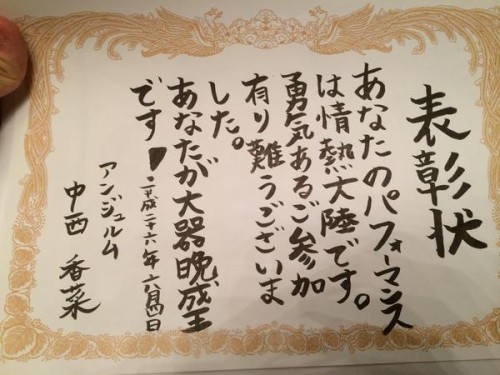 表彰状
あなたのパフォーマンス
は情熱大陸です。
勇気あるご参加
有り難うございま
した。
あなたが大器晩成王
です!
二平成二十六年六月四日
アンジュルム
中西香菜